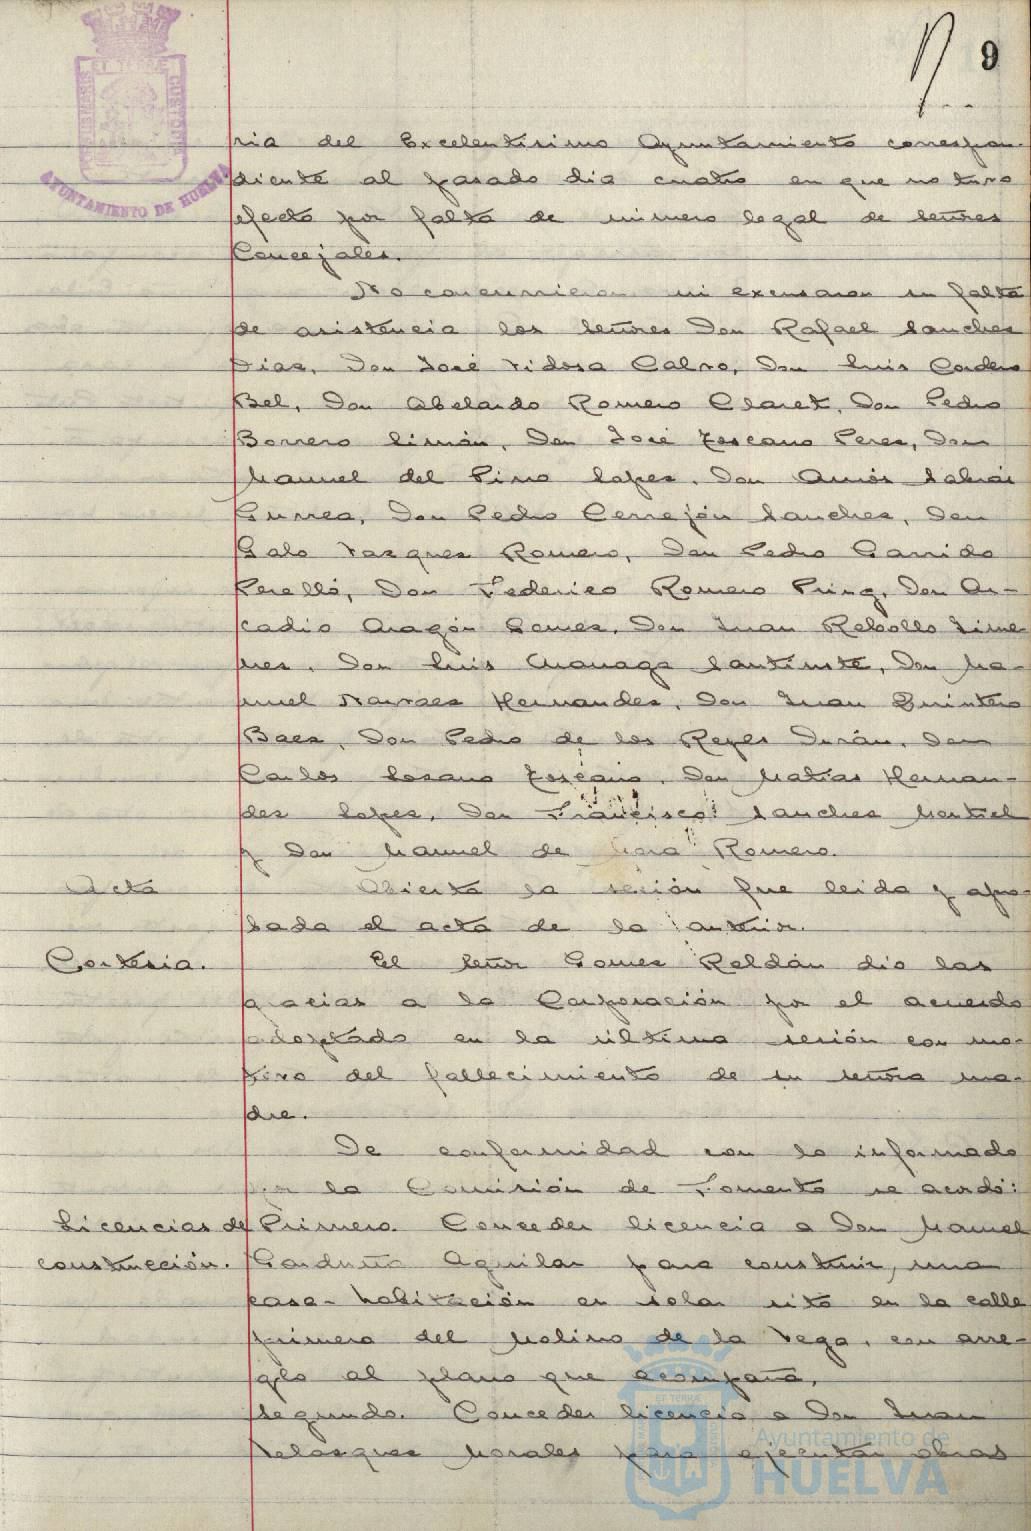 9
PORTUS MARIS ET TERRÆ CUSTODIA
AYUNTAMIENTO DE HUELVA
ria del Excelentisimo Ayuntamiento correspon-
diente al pasado dia cuatro en que no tuvo
efecto por falta de número legal de señores
Concejales.
No concurrieron ni excusaron su falta
de asistencia los señores Don Rafael Sanches
Dias, Don José Vidosa Calvo, Don Luis Cordero
Bel, Don Abelardo Romero Claret, Don Pedro
Borrero Limón, Don José Toscano Peres, Don
Manuel del Pino Lopes, Don Amós Sabrás
Gurrea, Don Pedro Cerrejón Sanches, Don
Galo Vasques Romero, Don Pedro Garrido
Perelló, Don Federico Romero Pring, Don Ar-
cadio Aragón Gomes, Don Juan Rebollo Jime
nes, Don Luis Santinste, Don Ma-
nuel Narvaes Hernandes, Don Juan Quintero
Baes, Don Pedro de los Reyes Durán, Don
Carlos Losano Toscano, Don Matias Hernan-
des Lopes, Don Francisco Sanches Montiel
y Don Manuel de Mora Romero.
Acta
Abierta la sesión fue leida y apro-
bada el acta de la anterior.
Cortesia.
El Señor Gomes Roldán dio las
gracias a la Corporación por el acuerdo
adoptado en la última sesión con mo-
tivo del fallecimiento de su señora ma-
dre.
De conformidad con lo informado
por la Comisión de Fomento se acordó:
Licencias de construcción.
Primero. Conceder licencia a Don Manuel
Garduño Aguilar para construir, una
casa-habitación en solar sito en la calle
primera del Molino de la Vega, con arre-
glo al plano que acompaña.
Segundo. Conceder licencia a Don Juan
Velasques Morales para ejecutar obras
Ayuntamiento de
HUELVA